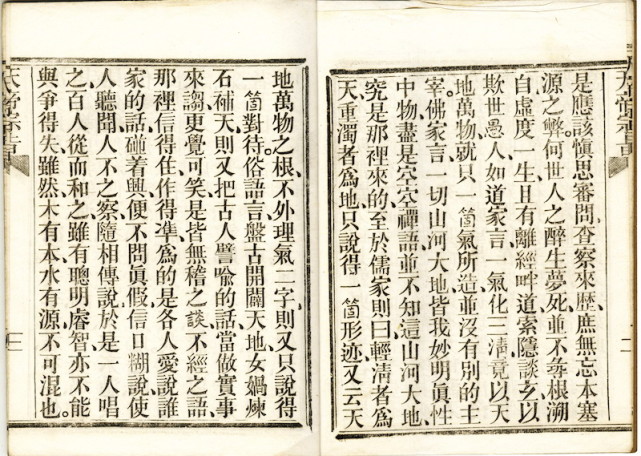 是應該愼思審問查察來歷、庶無忘本塞
源之弊、何世人之醉生夢死、並不尋根溯
自、虛度一生、且有離經畔道、索隱談玄、以
欺世愚人、如道家言、一氣化三淸、竟以天
地萬物、就只一箇氣所造、並沒有別的主
宰、佛家言、一切山河大地、皆我妙明眞性
中物、盡是空空禪語、並不知這山河大地、
究是那裡來的、至於儒家、則曰輕淸者爲
天、重濁者爲地、只說得一箇形迹、又云天
地萬物之根、不外理氣二字、則又只說得
一箇對待、俗語言盤古開闢天地、女媧煉
石補天、則又把古人譬喩的話、當做實事
來謅、更覺可笑、是皆無稽之談、不經之語、
那裡信得、任作得準、爲的是各人愛說誰
家的話、碰着興便、不問眞假、信口糊說、使
人聽聞、人不之察、隨相傳說、於是一人唱
之、百人從而和之、雖有聰明睿智、亦不能
與爭得失、雖然、木有本、水有源、不可混也。
二
三